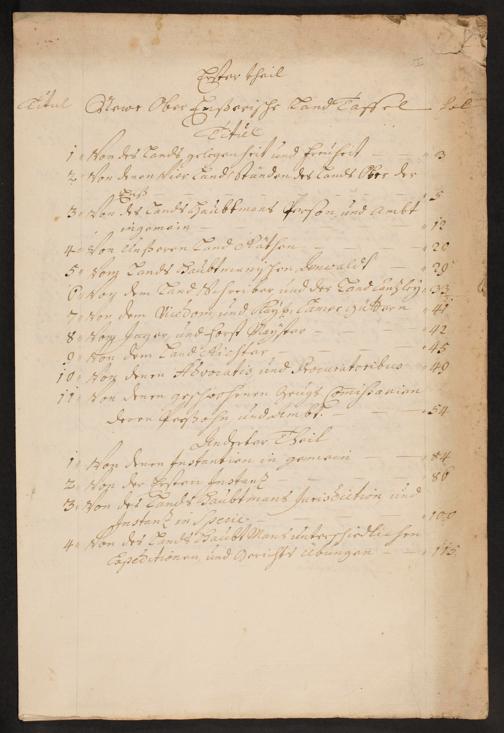 Erster theil
Titul Newe Ober Ennserische Land Taffel — Fol.
Titul
1. Von des Lands gelegenheit und freyheit — 3
2. Von denen Vier Land Ständen des Lands Ober der
Ennß — 5
3. Von des Lands Haubtmans Persohn, und Ambt
in gemain — 12
4. Von Unsseren Land Räthen — 20
5. Von Lands Haubtmannschen — 29
6. Von dem Land Schreiber und der Land Canzley 33
7. Von dem Vicdom, und Kayß. Camer — 41
8. Von Jäger, und forst Maister — 42
9. Von dem Land Richter — 45
10. Von denen Advocatis, und Procuratoribus 49
11. Von denen geschwohrnen Zeugs Comissarien
deren Persohn, und Ambt — 54
Anderter Theil
1. Von denen Instantien in gemain — 84
2. Von der Ersten Instanz — 86
3. Von des Lands Haubtmans Jurisdiction und
Instanz in Specie — 100
4. Von des Lands Haubt Mans unterschiedlichen
Expeditionen, und Gerichts Übungen — 115